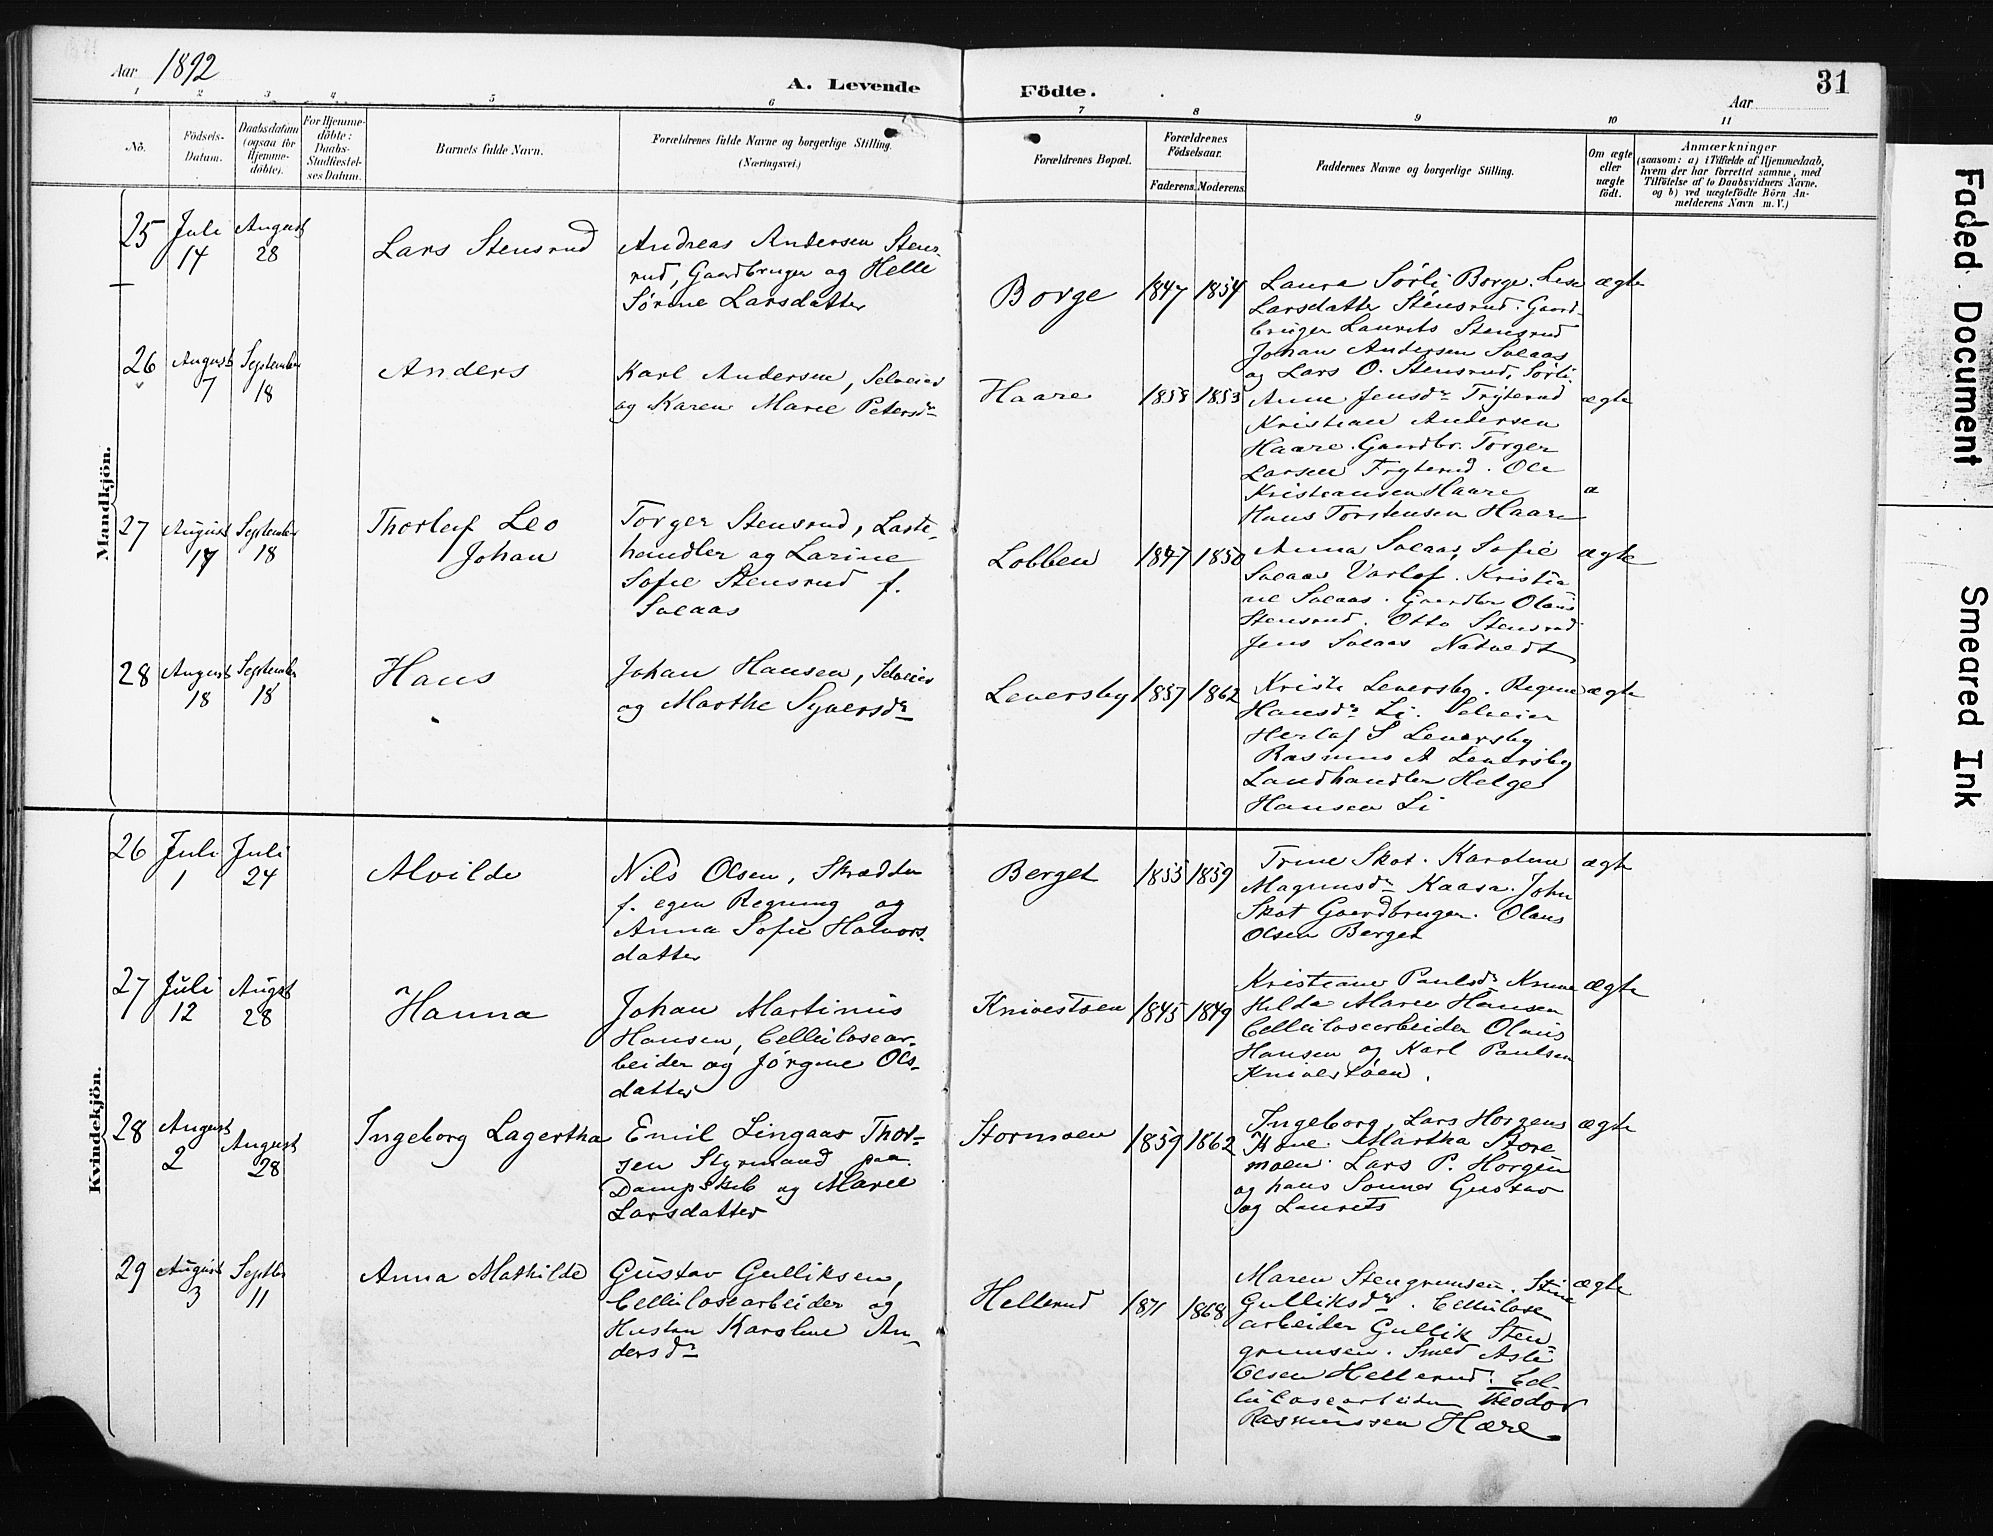 Aar 1892
A. Levende Födte.
31
Aar
1 2 3 4 5 6 7 8 9 10 11
No.
Födsels-Datum.
Daabsdatum (ogsaa for Hjemme-döbte).
For Hjemme-döbte: Daabs-Stadfæstel-ses Datum.
Barnets fulde Navn.
Forældrenes fulde Navne og borgerlige Stilling.
(Næringsvei.)
Forældrenes Bopæl.
Forældrenes Födselsaar.
Faderens. Moderens.
Faddernes Navne og borgerlige Stilling.
Om ægte eller uægte födt.
Anmærkninger
(saasom: a) i Tilfælde af Hjemmedaab,
hvem der har forrettet samme, med
Tilföielse af to Daabsvidners Navne,
og b) ved uægtefödte Börn An-
melderens Navn m. V.)
Mandkjön.
25 Juli 14 August 28
Lars Stensrud
Andreas Andersen Stens-
rud, Gaardbruger og Helle
Sørine Larsdatter
Borge 1847 1854
Laura Sørli Borge. Lise
Larsdatter Stensrud. Gaard-
bruger Laurits Stensrud
Johan Andersen Solaas
og Lars O. Stensrud, Sørli.
ægte
26 August 7 September 18
Anders
Karl Andersen, Selveier
og Karen Marie Petersdr
Haare 1858 1853
Anne Jensdr Tryterud
Kristian Andersen
Haare. Gaardbr. Torger
Larsen Tryterud. Ole
Kristiansen Haare
Hans Torstensen Haare
ægte
a
27 August 17 September 18
Thorleif Leo
Johan
Torger Stensrud, Laste-
handler og Larine
Sofie Stensrud f.
Solaas
Lobben 1847 1850
Anna Solaas, Sofie
Solaas Varlof. Kristia
ne Solaas. Gaardbr Olaus
Stensrud. Otto Stensrud
Jens Solaas Natvedt
ægte
28 August 18 September 18
Hans
Johan Hansen, Selveier
og Marthe Syversdr
Leversby 1857 1862
Kristi Leversby. Regine
Hansdr Li. Selveier
Herlof S Leversby
Rasmus A Leversby
Landhandler Helge
Hansen Li
ægte
Kvindekjön.
26 Juli 1 Juli 24
Alvilde
Nils Olsen, Skrædder
f. egen Regning og
Anna Sofie Halvors-
datter
Berget 1855 1859
Trine Skot. Karoline
Magnusdr Kaasa. John
Skot Gaardbruger. Olaus
Olsen Berget
ægte
27 Juli 12 August 28
Hanna
Johan Martinius
Hansen, Cellulosear-
beider og Jørgine Ols-
datter
Knivestøen 1845 1849
Kristiane Paulsdr Krune
Hilda Marie Hansen
Cellulosearbeider Olaus
Hansen og Karl Paulsen
Knivestøen.
ægte
28 August 2 August 28
Ingeborg Lagertha
Emil Lingaas Thor-
sen Styrmand paa
Dampskib og Maree
Larsdatter
Stormoen 1859 1862
Ingeborg, Lars Horgens
Kone. Martha Store
moen. Lars P. Horgen
og hans Sønner Gustav
og Laurits
ægte
29 August 3 Septbr 11
Anna Mathilde
Gustav Gulliksen,
Cellulosearbeider og
Hustru Karoline An-
dersdr
Hellerud 1871 1868
Maren Stengrunsen. Stine
Gulliksdr. Cellulose
arbeider Gullik Sten-
grunsen. Smed Asle
Olsen Hellerud. Cel-
lulosearbeider Theodor
Rasmussen Hære
ægte
Faded Document
Smeared Ink